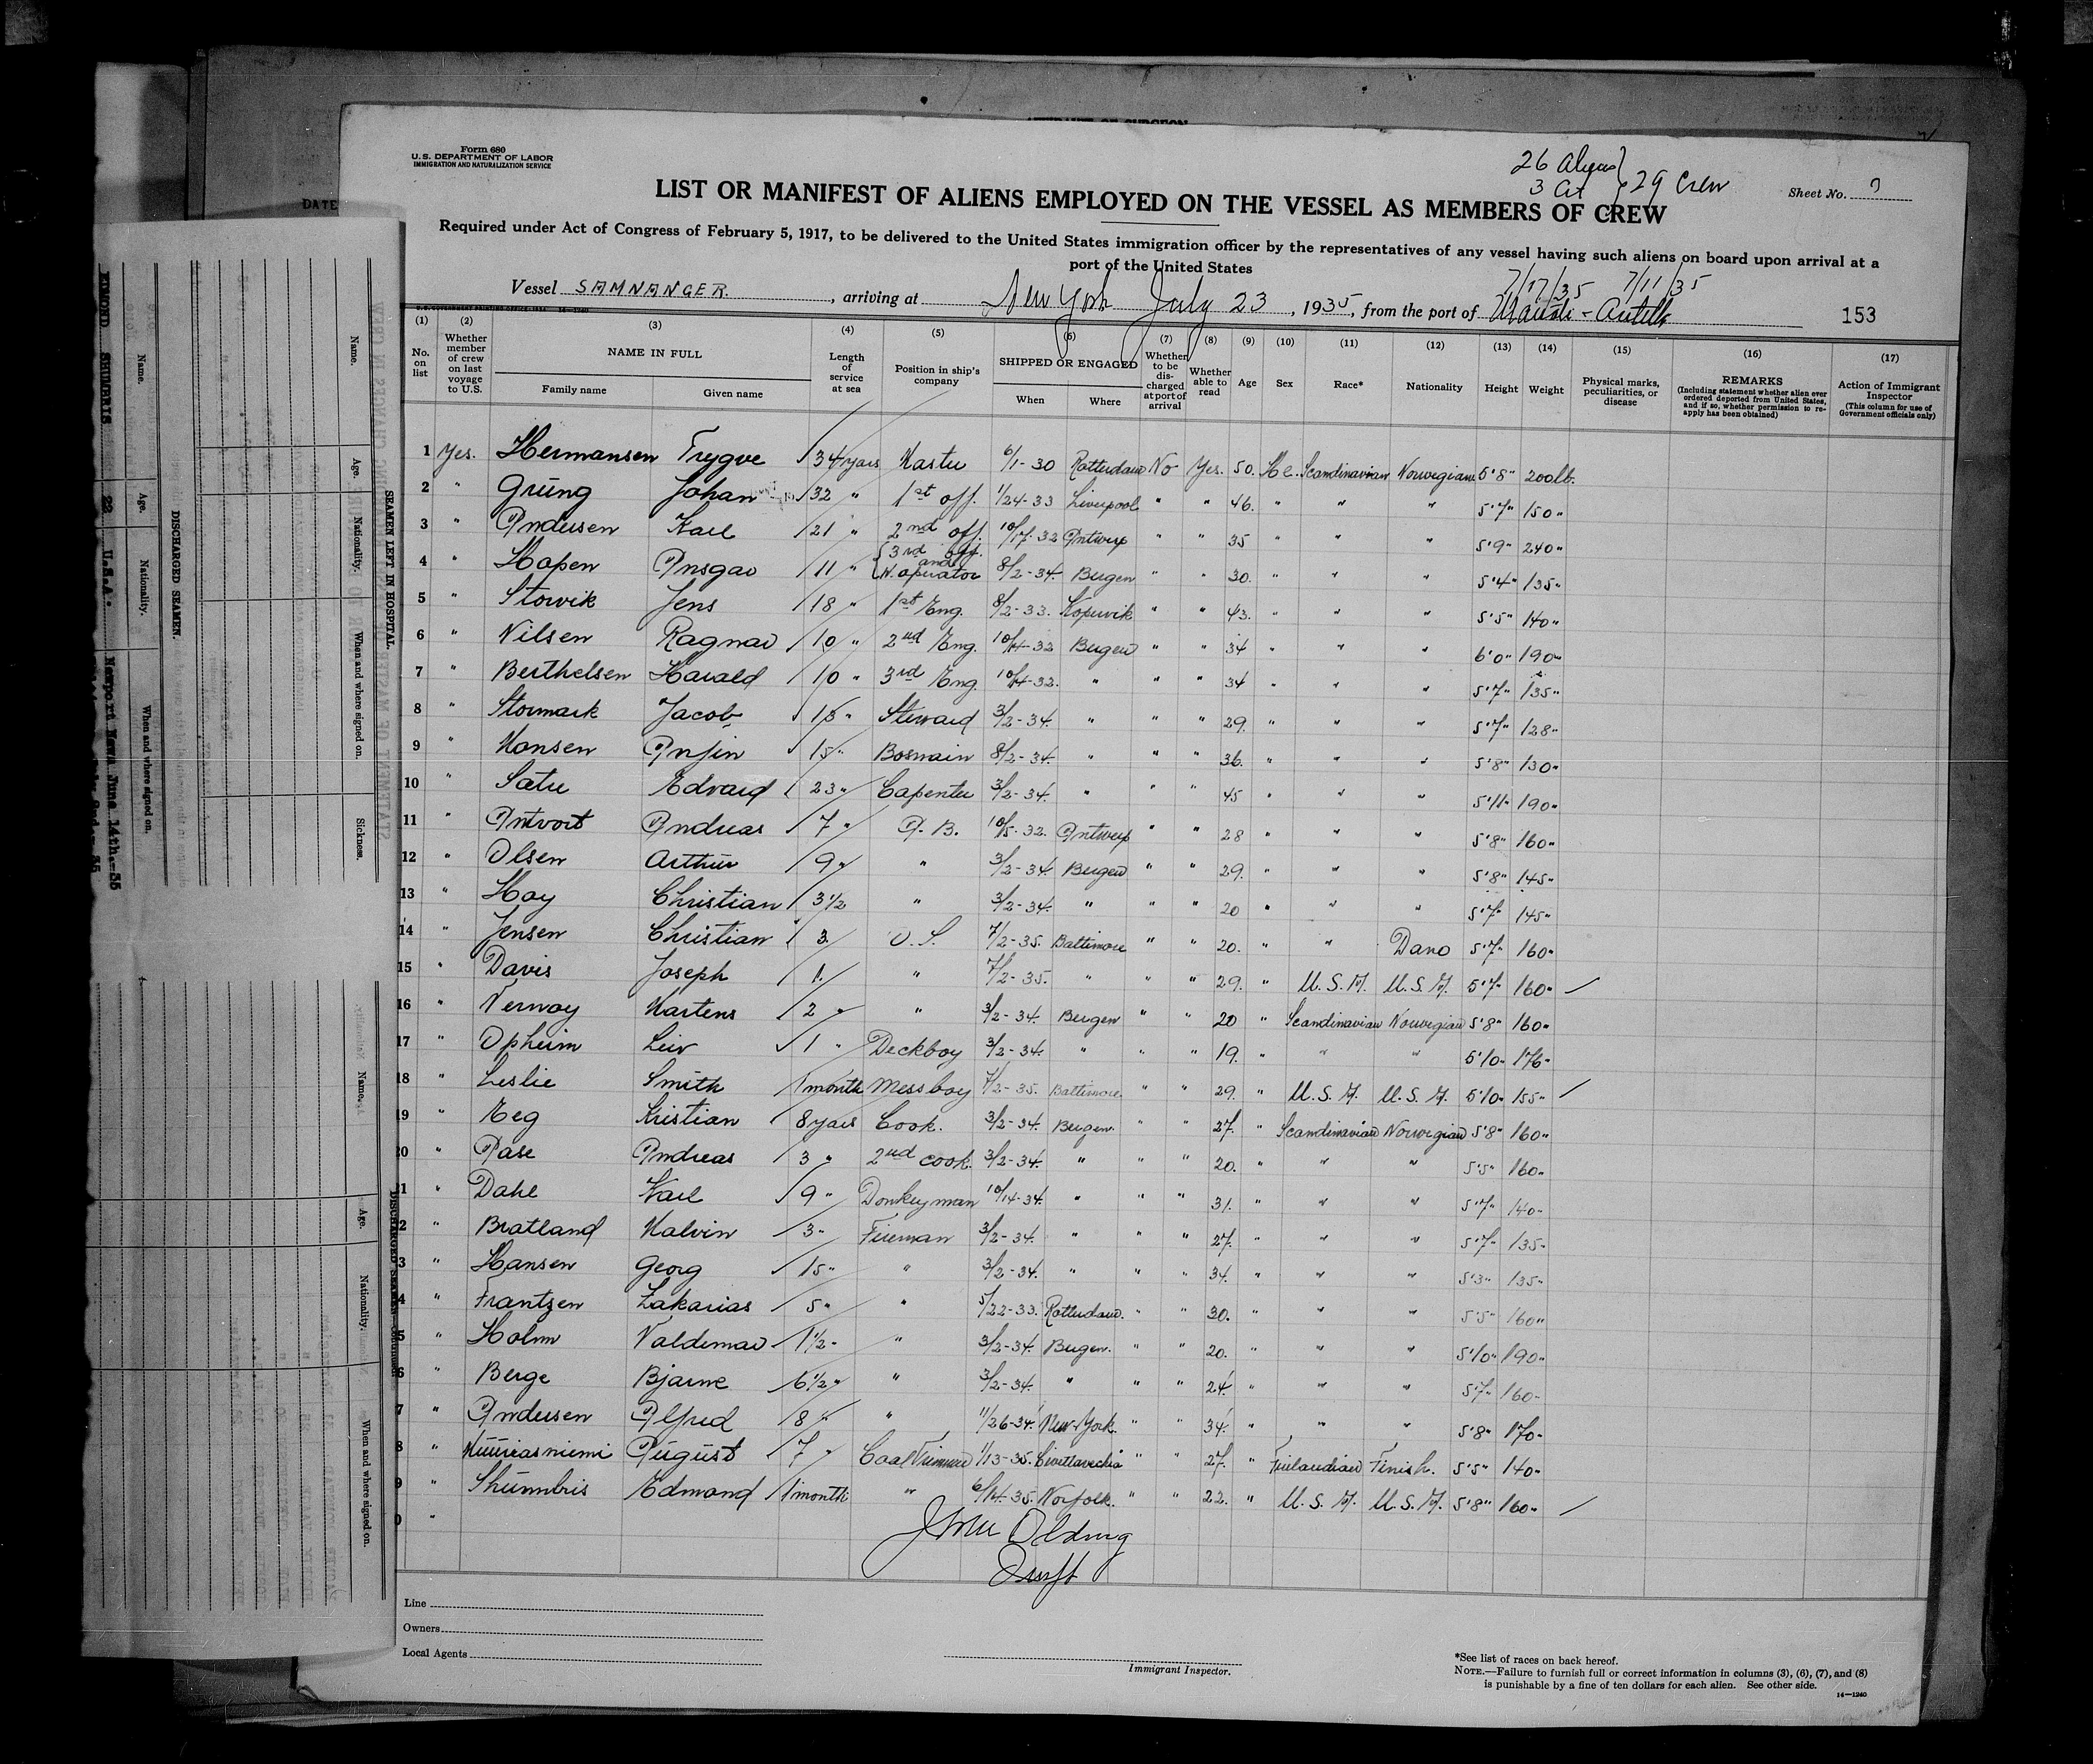 Form 680
U.S. DEPARTMENT OF LABOR
IMMIGRATION AND NATURALIZATION SERVICE
26 Aliens } 29 Crew
3 Cit
Sheet No.
LIST OR MANIFEST OF ALIENS EMPLOYED ON THE VESSEL AS MEMBERS OF CREW
Required under Act of Congress of February 5, 1917, to be delivered to the United States immigration officer by the representatives of any vessel having such aliens on board upon arrival at a
port of the United States
7/17/35 7/11/35
Vessel SAMNANGER, arriving at New York July 23, 1935, from the port of Manati - Antilla 153
(1) (2) (3) (4) (5) (6) (7) (8) (9) (10) (11) (12) (13) (14) (15) (16) (17)
No. on list Whether member of crew on last voyage to U.S. NAME IN FULL Family name Given name Length of service at sea Position in ship's company SHIPPED OR ENGAGED When Where Whether to be discharged at port of arrival Whether able to read Age Sex Race* Nationality Height Weight Physical marks, peculiarities, or disease REMARKS (Including statement whether alien ever ordered deported from United States, and if so, whether permission to reapply has been obtained) Action of Immigrant Inspector (This column for use of Government officials only)
1 Yes. Hermansen Trygve 34 years Master 6/1-30 Rotterdam No Yes. 50. Scandinavian Norwegian 5'8" 200lb.
2 " Grüng Johan 32 " 1st off. 1/24-33 Liverpool " " 46. " " " 5'7" 150"
3 " Andersen Karl 21 " 2nd off. 10/17-32 Antwerp " " 35 " " " 5'9" 240"
4 " Hopen Ansgar 11 " {3rd off. and W. operator 8/2-34. Bergen " " 30. " " " 5'4" 135"
5 " Storvik Jens 18 " 1st Eng. 8/2-33. Kopervik " " 43. " " " 5'5" 140"
6 " Nilsen Ragnar 10 " 2nd Eng. 10/14-32 Bergen " " 34 " " " 6'0" 190"
7 " Berthelsen Harald 10 " 3rd Eng. 10/14-32. " " " 34 " " " 5'7" 135"
8 " Stormark Jacob 13 " Steward 3/2-34. " " " 29. " " " 5'7" 128"
9 " Monsen Anfin 15 " Boswain 8/2-34. " " " 36. " " " 5'8" 130"
10 " Sætre Edvard 23 " Capenter 3/2-34. " " " 45 " " " 5'11" 190"
11 " Antvort Andreas 7 " A. B. 10/5-32. Antwerp " " 28 " " " 5'8" 160"
12 " Olsen Arthur 9 " " 3/2-34. Bergen " " 29. " " " 5'8" 145"
13 " Hoy Christian 3 1/2 " 3/2-34. " " " 20 " " " 5'7" 145"
14 " Jensen Christian 3 O. S. 7/2-35. Baltimore " " 20. " " Dano 5'7" 160"
15 " Davis Joseph 1 " 7/2-35. " " " 29. " U. S. A. U. S. A. 5'7" 160"
16 " Vernoy Martens 2 " " 3/2-34. Bergen " " 20 " Scandinavian Norwegian 5'8" 160"
17 " Opheim Leiv 1 " Deckboy 3/2-34. " " " 19. " " " 5'10" 176"
18 " Leslie Smith 1 month Messboy 7/2-35. Baltimore. " " 29. " U. S. A. U. S. A. 5'10" 155"
19 " Eeg Kristian 8 years Cook. 3/2-34. Bergen. " " 27. " Scandinavian Norwegian 5'8" 160"
20 " Aase Andreas 3 " 2nd cook. 3/2-34. " " " 20. " " " 5'5" 160"
1 " Dahl Karl 9 " Donkeyman 10/14-34. " " " 31. " " " 5'7" 140"
2 " Bratland Malvin 3 " Fireman 3/2-34. " " " 27. " " " 5'7" 135"
3 " Hansen Georg 15 " " 3/2-34. " " " 34. " " " 5'3" 135"
4 " Frantzen Zakarias 5 " " 5/22-33. Rotterdam. " " 30. " " " 5'5" 160"
5 " Holm Valdemar 1 1/2 " " 3/2-34. Bergen. " " 20. " " " 5'10" 190"
6 " Berge Bjarne 6 1/2 " " 3/2-34. " " " 24. " " " 5'7" 160"
7 " Andersen Alfred 8 " " 11/26-34. New-York. " " 34. " " " 5'8" 170"
8 " August 7 " 1/13-35. Civettavechia " " 27. " Finlandian Finish. 5'5" 140"
9 " Shümbris Edmond 1 month " 6/14-35. Norfolk. " " 22. " U. S. A. U. S. A. 5'8" 160"
0 "
Line
Owners
Local Agents
Immigrant Inspector.
*See list of races on back hereof.
NOTE.—Failure to furnish full or correct information in columns (3), (6), (7), and (8)
is punishable by a fine of ten dollars for each alien. See other side.
14—1240
DATE
SEAMEN LEFT IN HOSPITAL.
Name. Age. Nationality. When and where signed on. Sickness.
DISCHARGED SEAMEN.
Name. Age. Nationality. When and where signed on.
EDMOND SHUMBRIS 22 U.S.A. Newport News June 14th.-35
Name. Age. Nationality. When and where signed on.